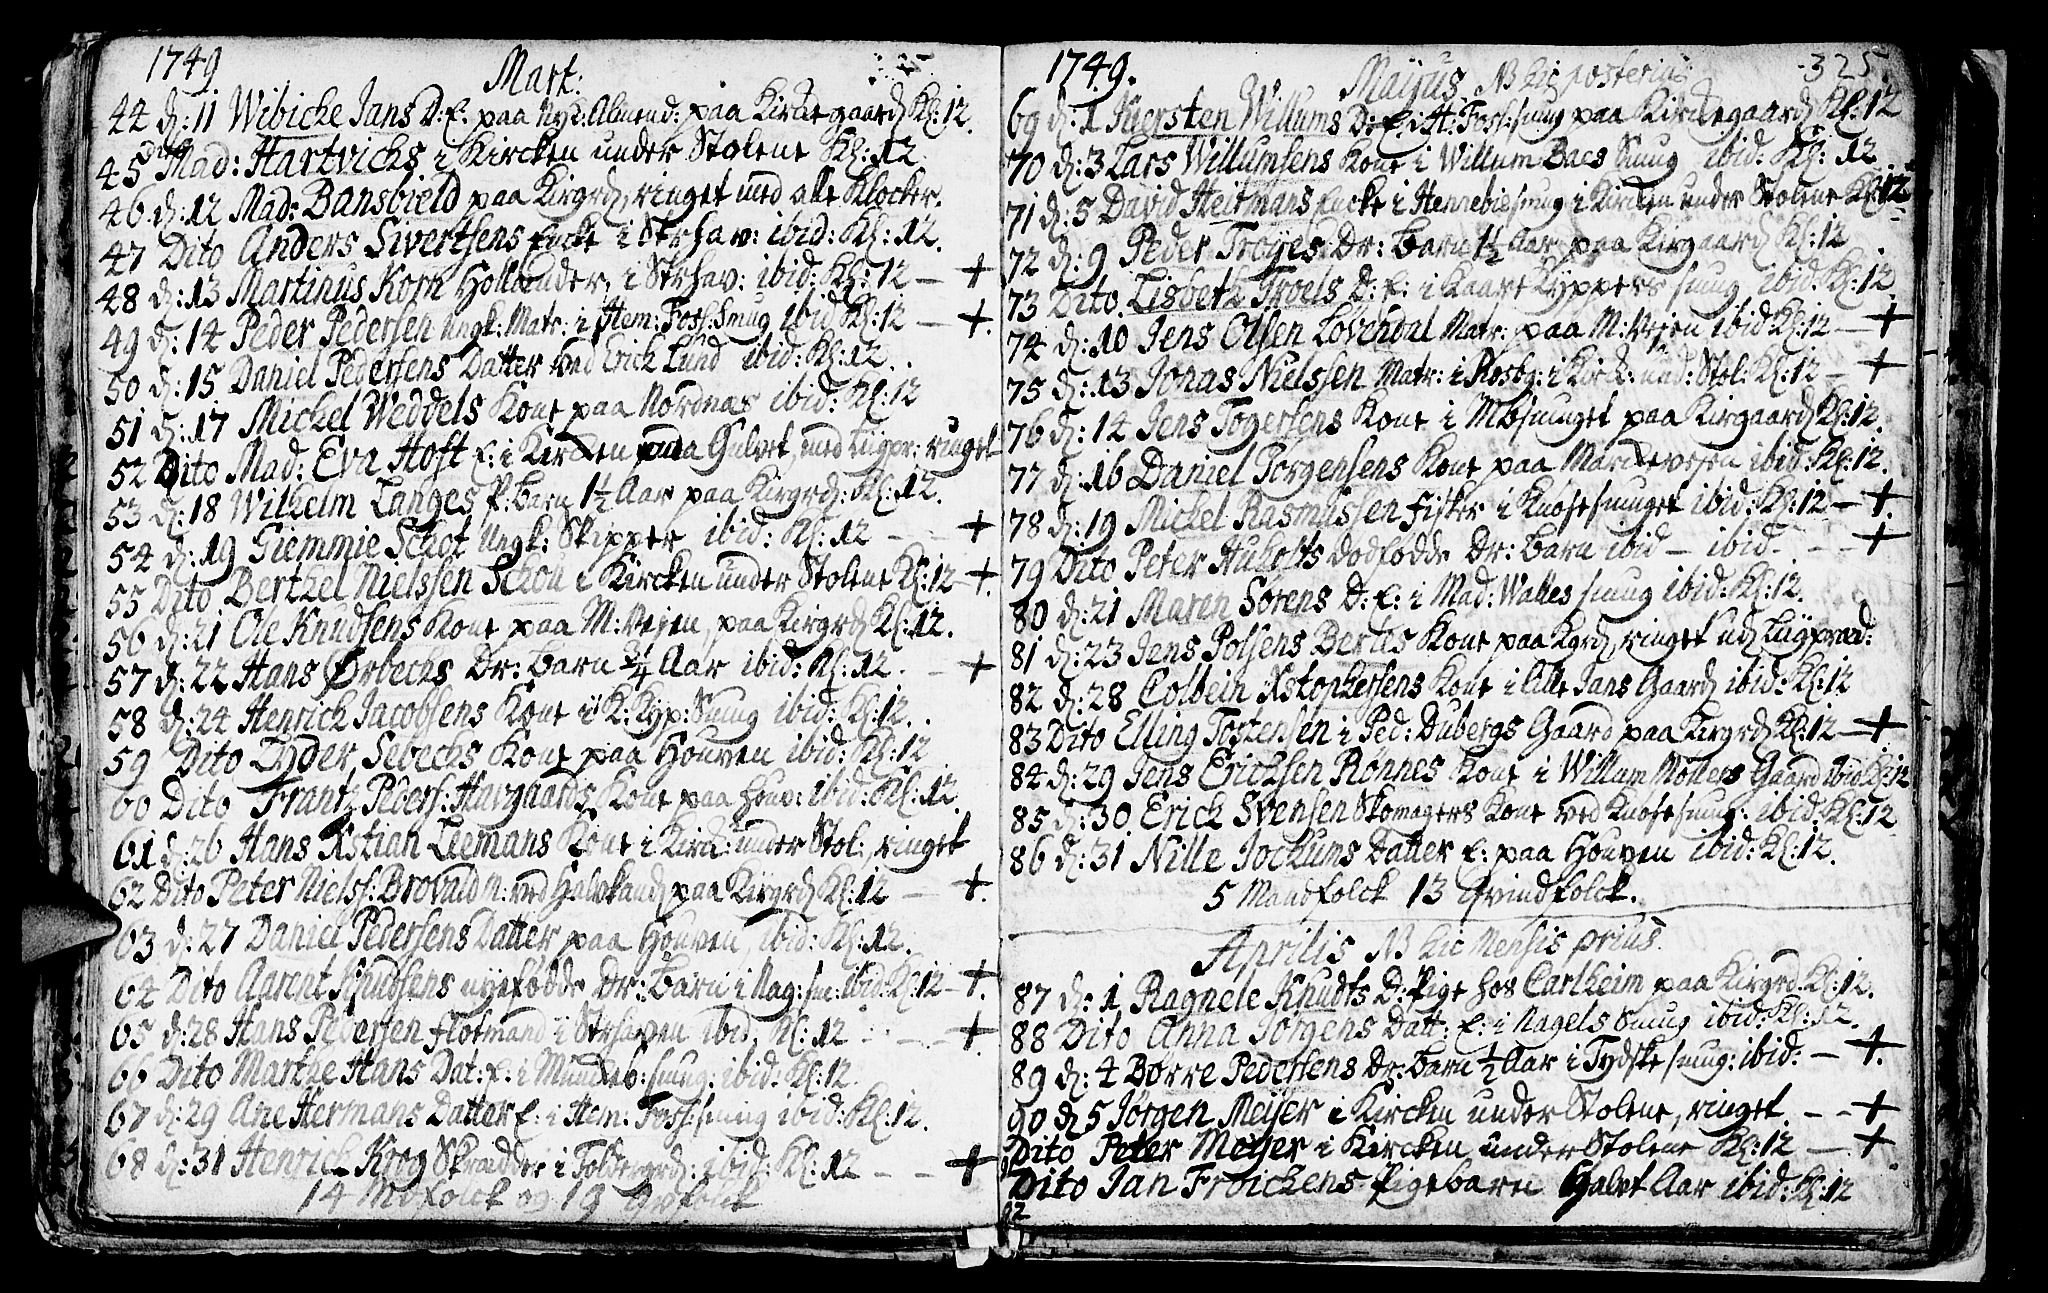 1749
Mart:
44 d: 11 Wibicke Jans D: E: paa Nye: Almend: paa Kirckegaard Kl: 12.
45 Dito Mad: Hartvichs i Kircken under Stolene Kl: 12
46 d: 12 Mad: Bansbield paa Kirgrd, ringet med alle Klocker.
47 Dito Anders Sivertsens Encke i Strhav: ibid: Kl: 12.
48 d: 13 Martinus Korn Hollender, i Strhav: ibid: Kl: 12 — +
49 d: 14 Peder Pedersen ungk: Matr: i Hem: Foss: Smug ibid Kl: 12 — +.
50 d: 15 Daniel Pedersens Datter ved Erick Lund ibid: Kl: 12.
51 d: 17 Mickel Weddels Kone paa Nordnæs ibid: Kl: 12
52 Dito Mad: Eva Hoft E: i Kircken paa Gulvet, med Liigpr: ringet
53 d: 18 Wilhelm Langes P: barn 1½ Aar paa Kirgrd: Kl: 12.
54 d: 19 Giemmie Schot Ungk: Skipper ibid: Kl: 12 — — +
55 Dito Berthel Nielssen Schou i Kircken under Stolene Kl: 12 — +.
56 d: 21 Ole Knudsens Kone paa M: Vejen, paa Kirgrd Kl: 12.
57 d: 22 Hans Ørbechs Dr: barn ¾ Aar ibid: Kl: 12. — +
58 d: 24 Henrich Jacobsens Kone i K: Kyp: Smug ibid: Kl: 12.
59 Dito Lyder Sebechs Kone paa Houven ibid: Kl: 12
60 Dito Frantz Peders: Havgaards Kone paa Houv: ibid: Kl: 12.
61 d: 26 Hans Xstian Leemans Kone i Kirck: under Stol:, ringet
62 Dito Peter Nielss: Brovald M: ved Halvkand paa Kirgrd Kl: 12 — +.
63 d: 27 Daniel Pedersens Datter paa Houven, ibid: Kl: 12.
64 Dito Aarent Knudsens nyefødde Dr: Barn i Nag: sm: ibid: Kl: 12 — +.
65 d: 28 Hans Pedersen flotmand i Strhaven ibid, Kl: 12 — — +.
66 Dito Marthe Hans Dat: E: i Muncke: smug: ibid: Kl: 12.
67 d: 29 Ane Hermans Datter E: i Hem: Foss: smug ibid: Kl: 12.
68 d: 31 Henrich Krog Skrædder i Toldergrd: ibid: Kl: 12 — — +
14 Mdfolck og 19 Qvfolck
1749.
325.
Majus NB hic posterius
69 d: 1 Kiersten Willums D: E: i H: Foss: smug paa Kirckegaard Kl: 12
70 d: 3 Lars Willumsens Kone i Willum Baes Smug ibid: Kl: 12.
71 d: 5 David Heitmans Encke i Hennebiesmug i Kircken under Stolene Kl: 12
72 d: 9 Peder Troyes Dr: barn 1½ Aar paa Kirgaard Kl: 12.
73 Dito Lisbeth Troels D: E: i Kaare Kyppers smug ibid: Kl: 12
74 d: 10 Jens Olsen Lovendal Matr: paa M: Vejen ibid: Kl: 12 — +
75 d: 13 Jonas Nielssen Matr: i Rosbg: i Kirck: und: Stol: Kl: 12 — +
76 d: 14 Jens Togersens Kone i Mbsmuget paa Kirgaard Kl: 12.
77 d: 16 Daniel Jorgensens Kone paa Marckevejen ibid: Kl: 12.
78 d: 19 Mickel Rasmussen Fisker i Knosesmuget ibid: Kl: 12 — +.
79 Dito Peter Huholts dodfødde Dr: barn ibid — ibid. — — +
80 d: 21 Maren Sørens D: E: i Mad: Walles smug ibid: Kl: 12.
81 d: 23 Jens Polsens Bertes Kone paa Kgrd, ringet ud Liigpræd:
82 d: 28 Colbein Xstophersens Kone i lille Jans Gaard ibid: Kl: 12
83 Dito Elling Tostensen i Ped: Dubergs Gaard paa Kirgrd Kl: 12 — +
84 d: 29 Jens Ericksen Rønnes Kone i Willum Møllers Gaard ibid: Kl: 12
85 d: 30 Erick Svensen Skomagers Kone ved Knosesmug: ibid: Kl: 12
86 d: 31 Nille Jochums Datter E: paa Houven ibid: Kl: 12.
5 Mandfolck 13 Qvindfolck.
Aprilis NB hic Mensis prius
87 d: 1 Ragnele Knudts D: Pige hos Carlheim paa Kirgrd. Kl: 12.
88 Dito Anna Jørgens Datt: E: i Nagels Smug ibid: Kl: 12.
89 d: 4 Børre Pedersens Dr: barn ½ Aar i Tydske smug: ibid: — +.
90 d 5 Jørgen Meyer i Kircken under Stolene, ringet — — +
91 Dito Peter Meyer i Kircken under Stolene Kl: 12 — +
92 Dito Jan Froickens Pigebarn Halvt Aar ibid: Kl: 12